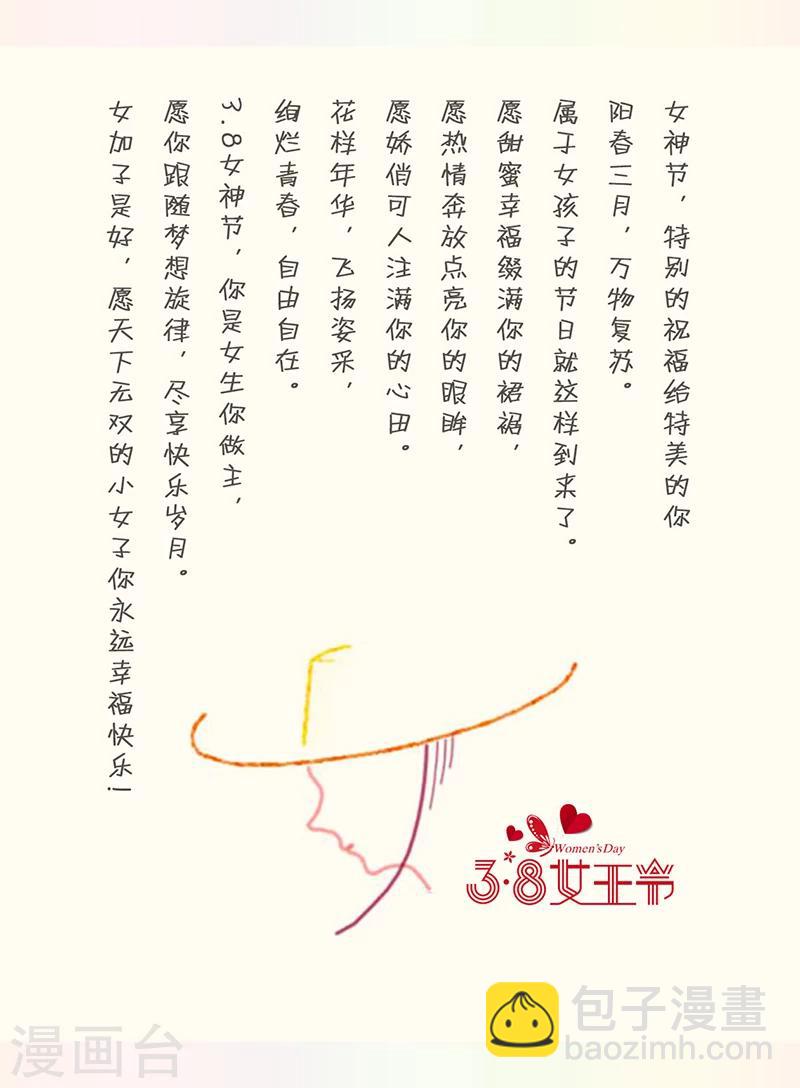 女神节，特别的祝福给特美的你
阳春三月，万物复苏。
属于女孩子的节日就这样到来了。
愿甜蜜幸福缀满你的裙裾，
愿热情奔放点亮你的眼眸，
愿娇俏可人注满你的心田。
花样年华，飞扬姿采，
绚烂青春，自由自在。
3.8女神节，你是女生你做主，
愿你跟随梦想旋律，尽享快乐岁月。
女加子是好，愿天下无双的小女子你永远幸福快乐！
Women'sDay
3·8女王节
包子漫畫
baozimh.com
漫画台